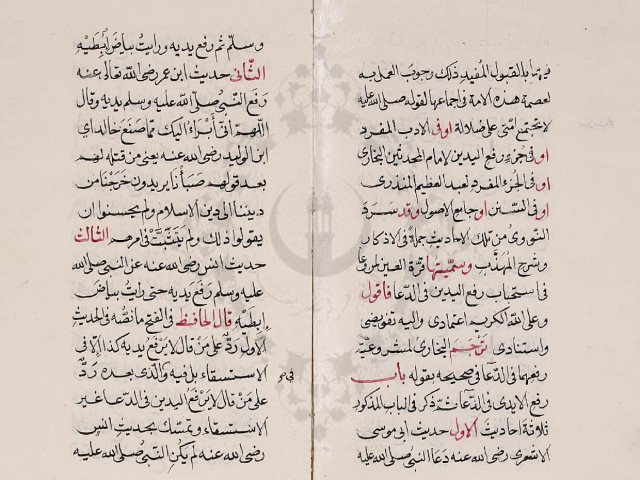 فيهما بالقبول المفيد ذلك وجوب العمل به
لعصمة هذه الامة في اجماعها لقوله صلى الله عليه
لا تجتمع امتي على ضلالة او في الادب المفرد
او في جزء رفع اليدين لامام المحدثين البخاري
او في الجزء المفرد لعبد العظيم المنذري
او في السنن او جامع الاصول وقد سرد
النووي من تلك الاحاديث جملة في الاذكار
وشرح المهذب وسميتها قرة العين لمن وعا
في استحباب رفع اليدين في الدعا فاقول
وعلى الله الكريم اعتمادي واليه تفويضي
واستنادي ترجم البخاري لمشروعية
رفعهما في الدعا في صحيحه بقوله باب
رفع الايدي في الدعا ثم ذكر في الباب المذكور
ثلاثة احاديث الاول حديث ابي موسى
الاشعري رضي الله عنه دعا النبي صلى الله عليه
وسلم ثم رفع يديه ورايت بياض ابطيه
الثاني حديث ابن عمر رضي الله تعالى عنه
رفع النبي صلى الله عليه وسلم يديه وقال
اللهم اني أبراء اليك مما صنع خالد اي
ابن الوليد رضي الله عنه يعني من قتله لهم
بعد قولهم صبأنا يريدون خرجنا من
ديننا الى دين الاسلام ولم يحسنوا ان
يقولوا ذلك ولم يتثبت في امرهم الثالث
حديث انس رضي الله عنه عن النبي صلى الله
عليه وسلم رفع يديه حتى رايت بياض
ابطيه قال الحافظ في الفتح ما نصه في الحديث
الاول رد على من قال لا يرفع يديه كذا الا في
الاستسقاء بل فيه والذي بعده رد
على من قال لا يرفع اليدين في الدعا غير
الاستسقاء وتمسك بحديث انس
رضي الله عنه لم يكن النبي صلى الله عليه